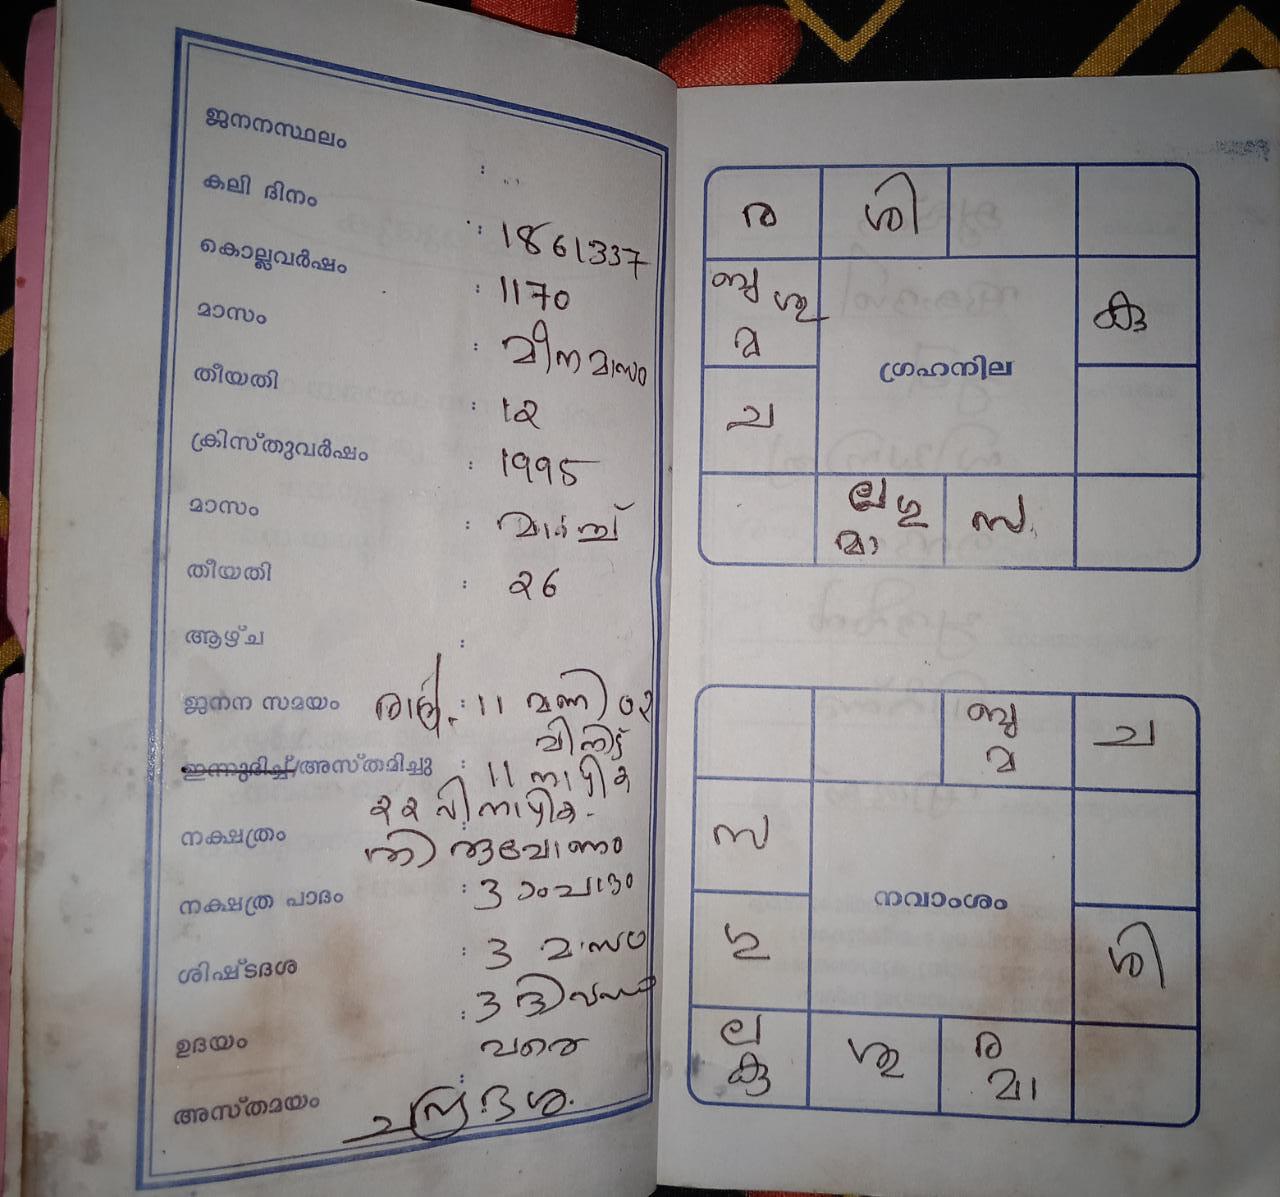 ജനനസ്ഥലം :
കലി ദിനം : 1861337
കൊല്ലവർഷം : 1170
മാസം : മീനമാസം
തീയതി : 12
ക്രിസ്തുവർഷം : 1995
മാസം : മാർച്ച്
തീയതി : 26
ആഴ്ച :
ജനന സമയം രാത്രി : 11 മണി 02
മിനിട്ട്
ഇന്നുദിച്ച്/അസ്തമിച്ചു : 11 നാഴിക
22 വിനാഴിക
നക്ഷത്രം തിരുവോണം
നക്ഷത്ര പാദം : 3 ാംപാദം
ശിഷ്ടദശ : 3 മാസം
: 3 ദിവസം
ഉദയം വരെ
അസ്തമയം : ചന്ദ്രദശ.
ര ശി
ബു ശു
മ
കു
ഗ്രഹനില
ച
ല ഗു
മാ
സ
ബു
മ
ച
സ
നവാംശം
ഗു
ശി
ല
കു
ശു
ര
മാ